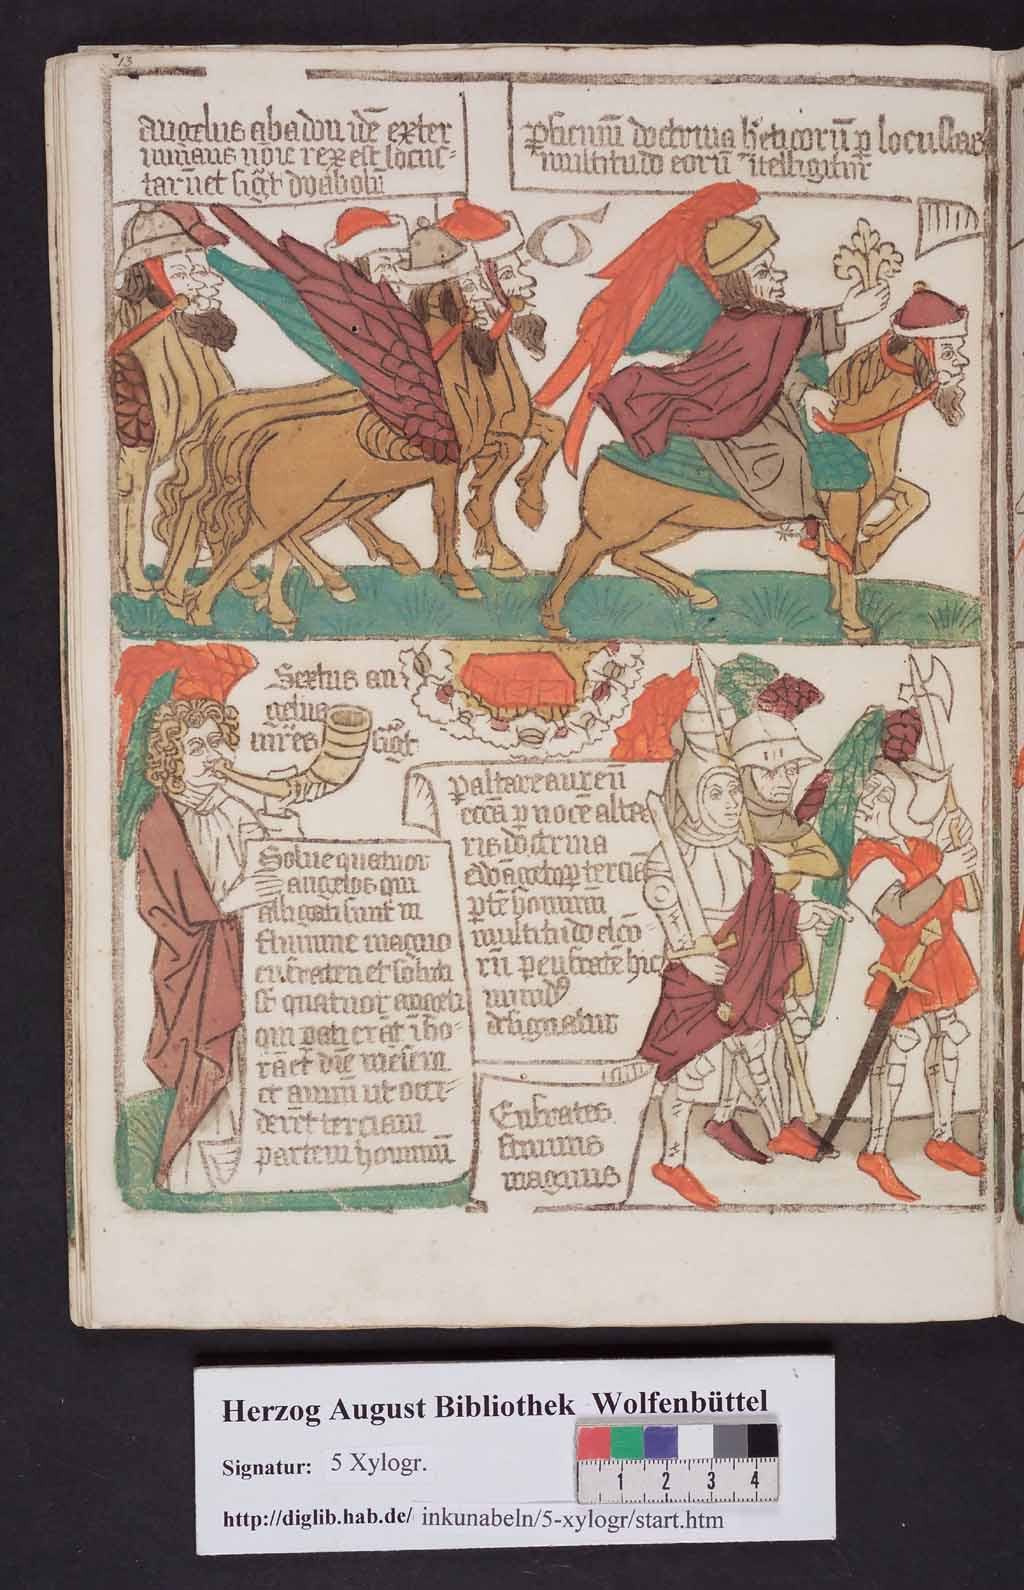 13
angelus abadon id est exter
minans noīe rex est locus-
tarū et sigͭ dyabolū
p̱ fumum doctrina hēticorū p̱ locustas
multitudo eorū ītelligitur
G
Sextus an
gelus
sigͭ
Solue quatuor
angelos qui
alligati sunt in
flumine magno
eufraten et soluti
st̄ quatuor angeli
qui pati erāt ī ho-
rā et diē mēsem
et annū ut occi-
derēt terciam
partem hominū
p̱ altare aureū
eccā p̱ uocē alta-
ris doctrina
p̱tē hominū
multitudo
rū p̱ eufratē hic
mūdꝰ
designatur
Eufrates
fluuius
magnus
Herzog August Bibliothek Wolfenbüttel
Signatur: 5 Xylogr.
1 2 3 4
http://diglib.hab.de/ inkunabeln/5-xylogr/start.htm